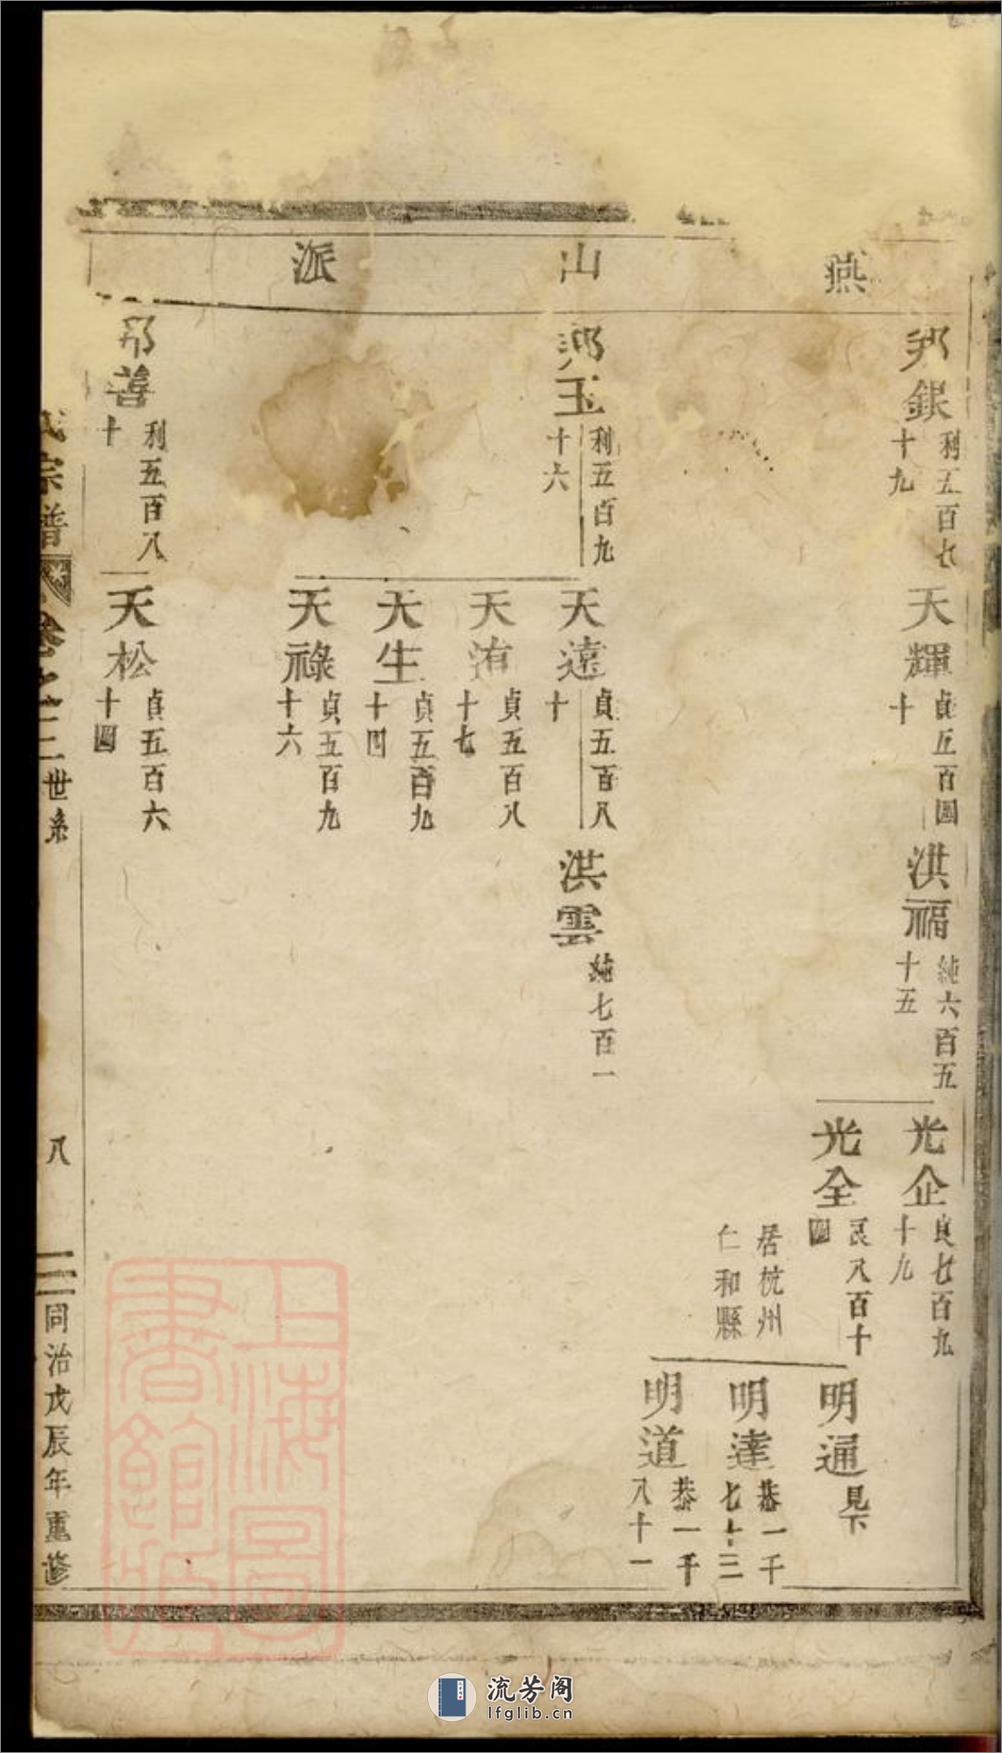 燕山派
邦銀
利五百七十九
天輝
貞五百四十
洪福
純六百五十五
光企
良七百九十九
光全
良八百十四
居杭州仁和縣
明通
見下
明達
恭一千七十三
明道
恭一千八十一
邦玉
利五百九十六
天遠
貞五百八十
洪雲
純七百一
天洧
貞五百八十七
天生
貞五百九十四
天祿
貞五百九十六
邦善
利五百八十
天松
貞五百六十四
氏宗譜
卷之三
世系
八
同治戊辰年重修
上海圖書館藏
流芳阁
lfglib.cn.com